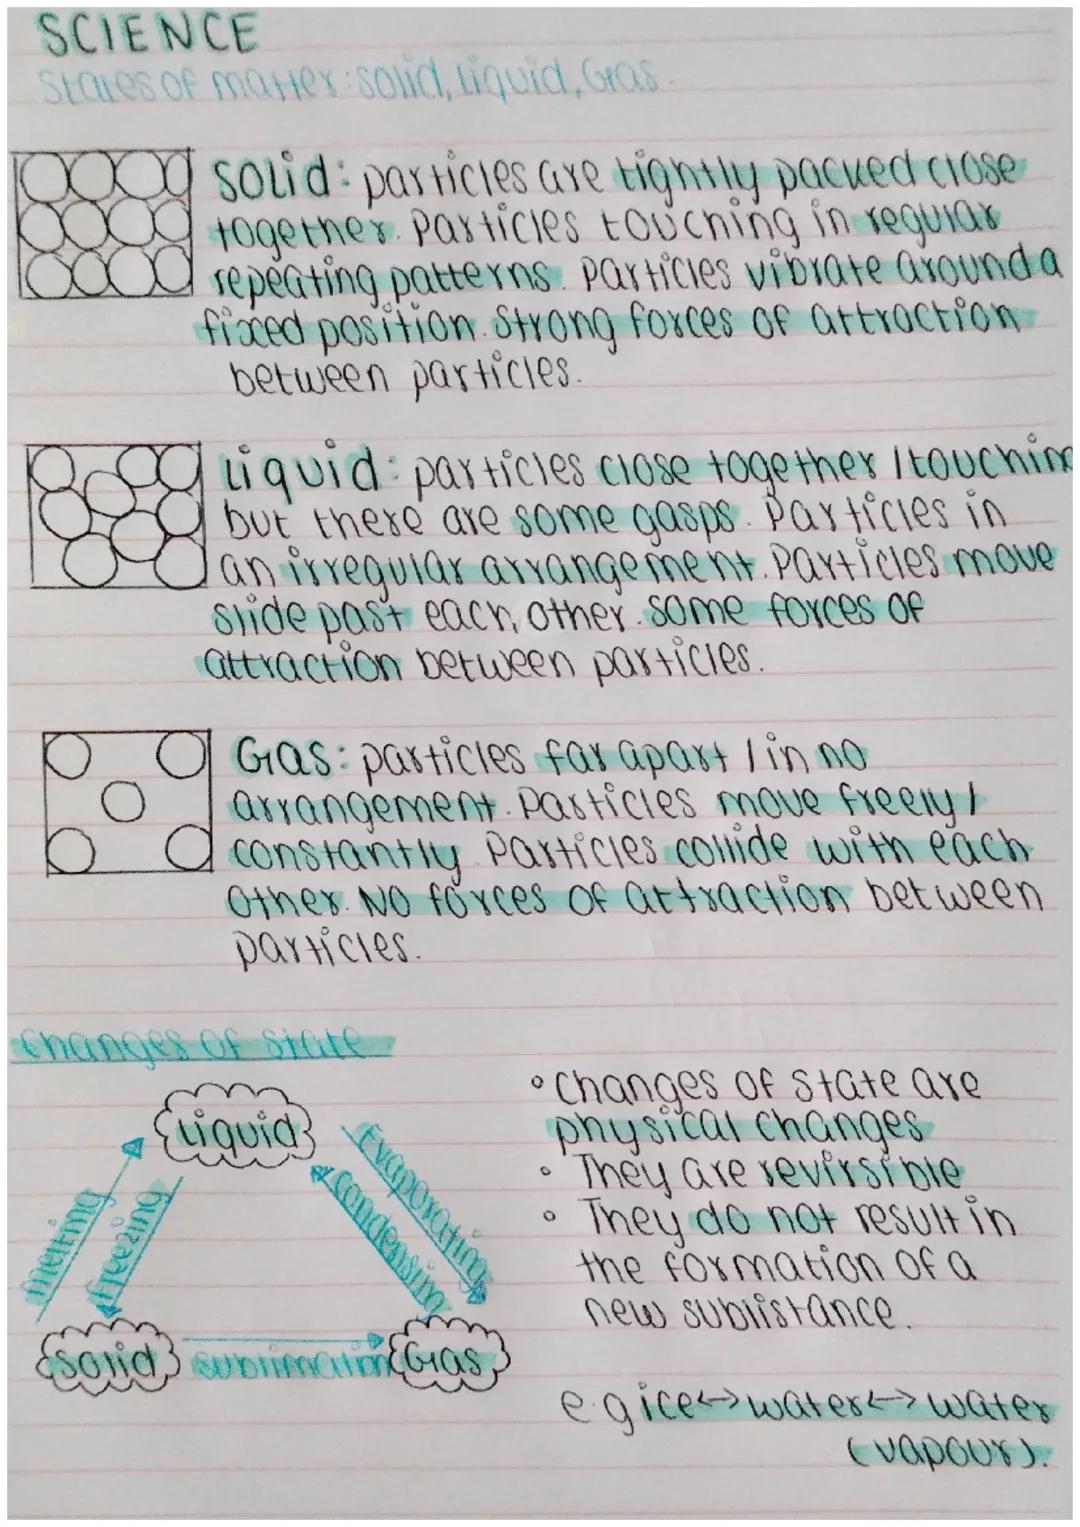 SCIENCE
States of matter: solid, liquid, Gas.
Solid: particles are tightly packed close
together. Particles touching in regular
repeating patterns. Particles vibrate around a
fixed position. Strong forces of attraction
between particles.
Liquid: particles close together / touching
but there are some gasps. Particles in
an irregular arrangement. Particles move
slide past each other. Some forces of
attraction between particles.
Gas: particles far apart / in no
arrangement. Particles move freely /
constantly. Particles collide with each
other. No forces of attraction between
particles.
Changes of state
Liquid
melting
freezing
Evaporating
condensing
Solid
sublimation
Gas
• Changes of state are
physical changes
• They are revirsible
• They do not result in
the formation of a
new sublistance.
e.g ice<->water<->water
(vapour).